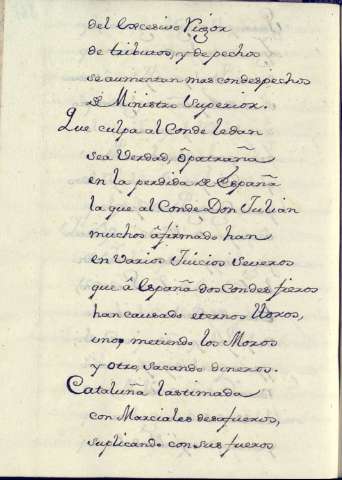 del Excesivo Rigor
de tributos, y de pechos
se aumentan mas con despechos
de Ministro Superior.
Que culpa al Conde le dan
sea Verdad, ô patraña
en la perdida de España
la que al Conde Don Julian
muchos âfirmado han
en varios Juicios Severos
que â España dos Condes fieros
han causado eternos lloros,
uno, metiendo los Moros
y otro, sacando dineros.
Cataluña lastimada
con Marciales desafueros,
suplicando con sus fueros